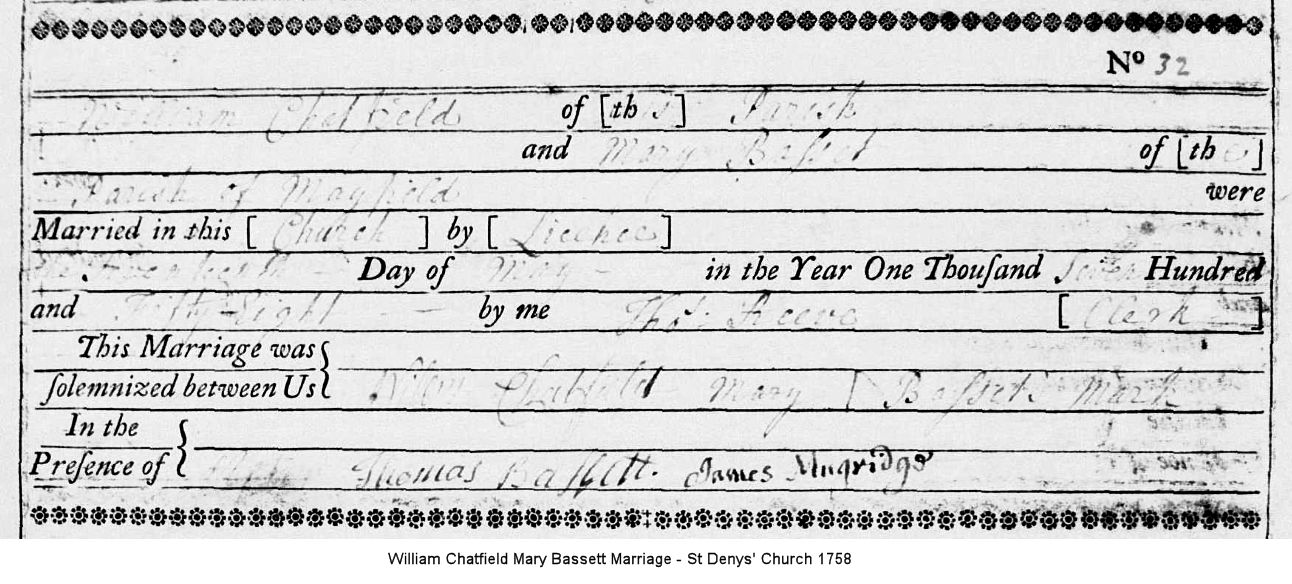 No 32
William Chatfield of [this] Parish
and Mary Baſset of [the]
Parish of Mayfield were
Married in this [Church] by [Licence]
Day of May in the Year One Thouſand Seven Hundred
and Fifty Eight by me Thos. Reeve [Clerk]
This Marriage was
ſolemnized between Us Chatfield Mary Baſset Mark
In the
Preſence of Thomas Baſsett. James Mugridge
William Chatfield Mary Bassett Marriage - St Denys' Church 1758